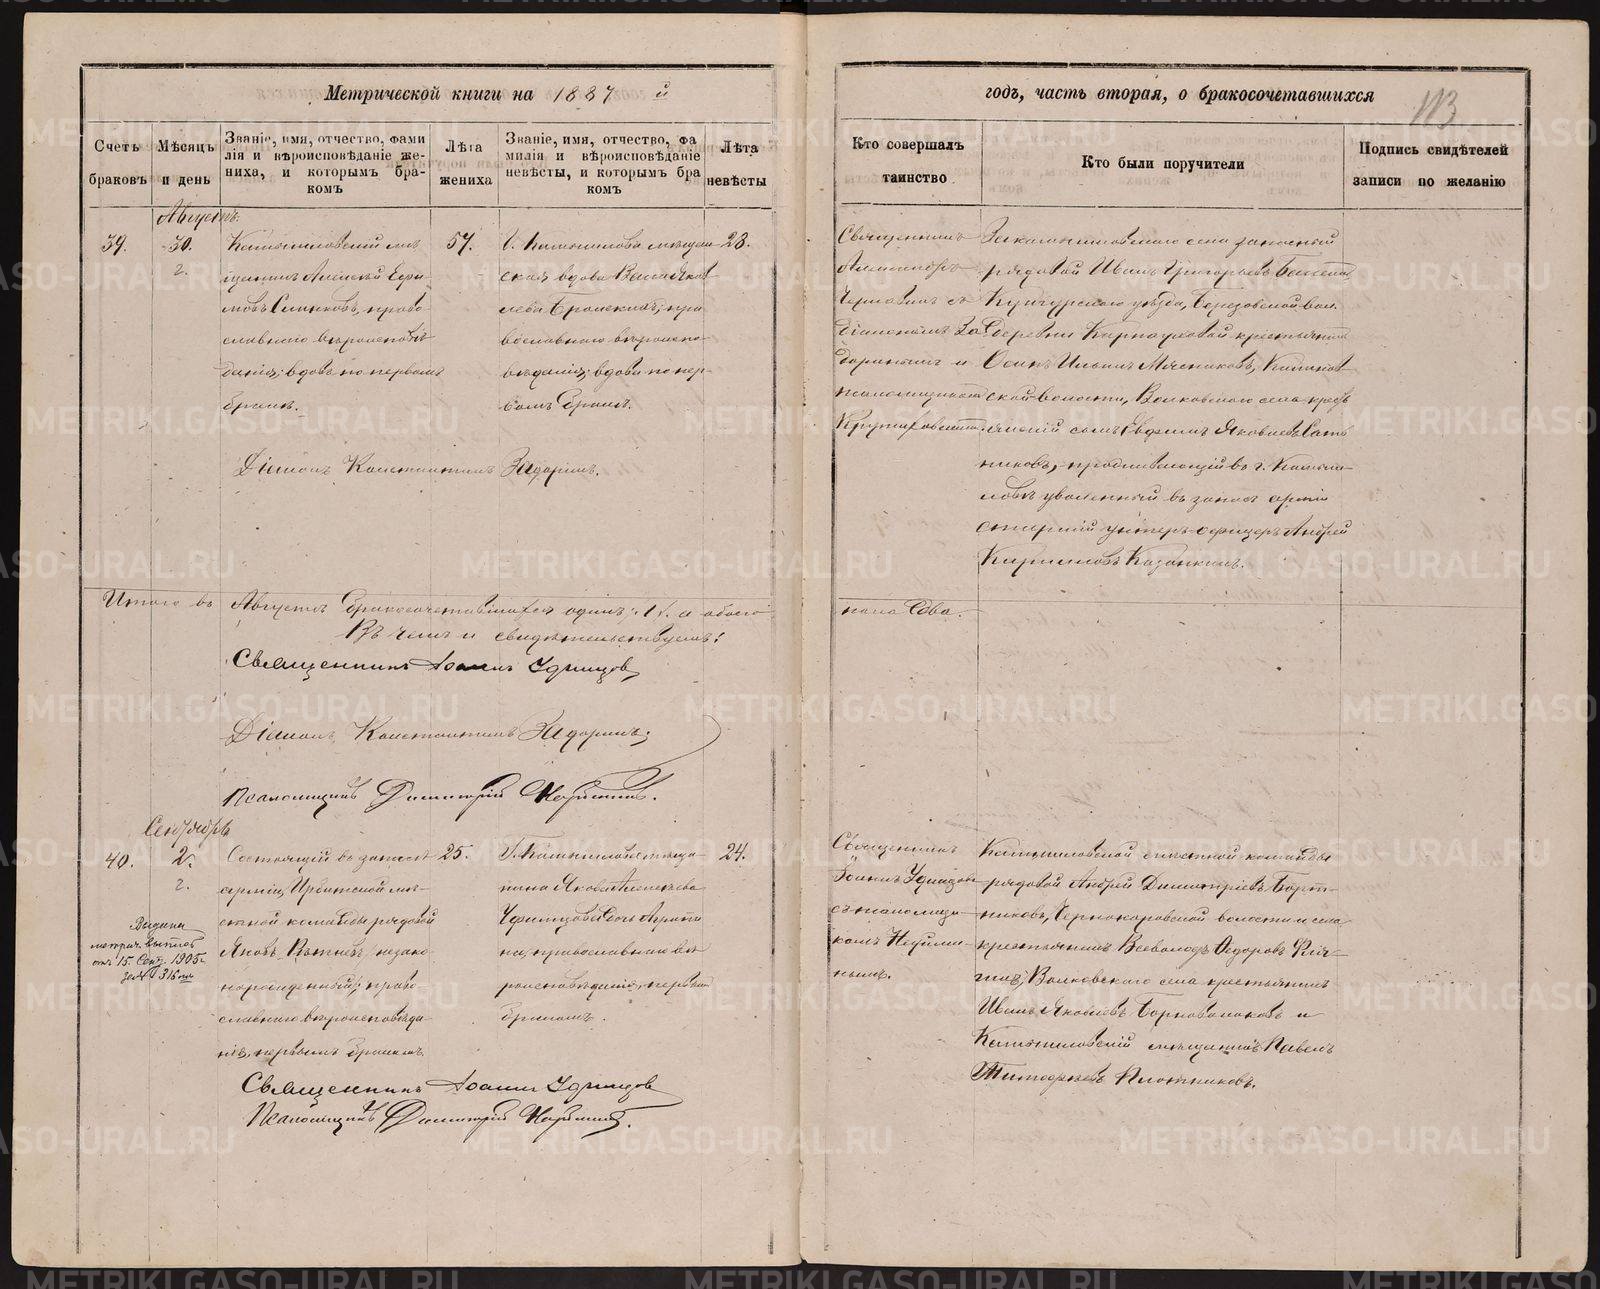 Метрической книги на 1887 й
годъ, часть вторая, о бракосочетавшихся
113
Счетъ браковъ
Мѣсяцъ и день
Званіе, имя, отчество, фами
лія и вѣроисповѣданіе же-
ниха, и которымъ бра-
комъ
Лѣта жениха
Званіе, имя, отчество, фа
милія и вѣроисповѣданіе
невѣсты, и которымъ бра
комъ
Лѣта невѣсты
Кто совершалъ таинство
Кто были поручители
Подпись свидѣтелей
записи по желанію
Августъ.
39.
30.
2.
Камышловскій мѣ
щанинъ Алексѣй Ефи-
мовъ право-
славнаго вѣроисповѣ
данія; вдовъ по первомъ
бракѣ.
57.
Г. Камышлова мѣщан
ская вдова Васса Яков
лева пра
вославнаго вѣроиспо-
вѣданія; вдова по пер-
вомъ бракѣ.
28.
Священникъ
Александръ
съ
діакономъ За
доринымъ и
псаломщикомъ
Закамышловскаго села запасный
рядовой Иванъ Григорьевъ
Кунгурскаго уѣзда, Березовской вол.
деревни крестьянинъ
Осипъ Ильинъ Мясниковъ,
ской волости, Волковскаго села крес
янскій сынъ Евфимъ Яковлевъ
никовъ, проживающій въ г. Камыш-
ловѣ уволенный въ запасъ арміи
старшій унтеръ-офицеръ Андрей
Казанкинъ.
Діаконъ Константинъ Задоринъ.
Итого въ Августѣ бракосочетавшихся одинъ: 1. а обоего
пола Два.
Въ чемъ и свидѣтельствуемъ:
Священникъ Іоаннъ Удинцовъ
Діаконъ Константинъ Задоринъ;
Псаломщикъ Димитрій
Сентябрь
40.
2.
2.
Выдана
метрич. выпись
от 15. Сент. 1905 г.
за № 316
Состоящій въ запасѣ
арміи, Ирбитской мѣ-
стной команды рядовой
Яковъ незако-
норожденный; право-
славнаго вѣроисповѣда-
нія, первымъ бракомъ
25.
Г. Камышлова мѣща-
нина Якова Алексѣева
дочь Агриппи
на, православнаго вѣ
роисповѣданія, первымъ
бракомъ.
24.
Священникъ
Іоаннъ Удинцовъ
съ псаломщи-
комъ
нымъ.
Камышловской мѣстной команды
рядовой Андрей Димитріевъ Борт-
никовъ, Чернокоровской волости и села
крестьянинъ Всеволодъ Ѳедоровъ
Волковскаго села крестьянинъ
Иванъ Яковлевъ Борноволоковъ и
Камышловскій мѣщанинъ Павелъ
Плотниковъ.
Священникъ Іоаннъ Удинцовъ
Псаломщикъ Димитрій
METRIKI.GASO-URAL.RU